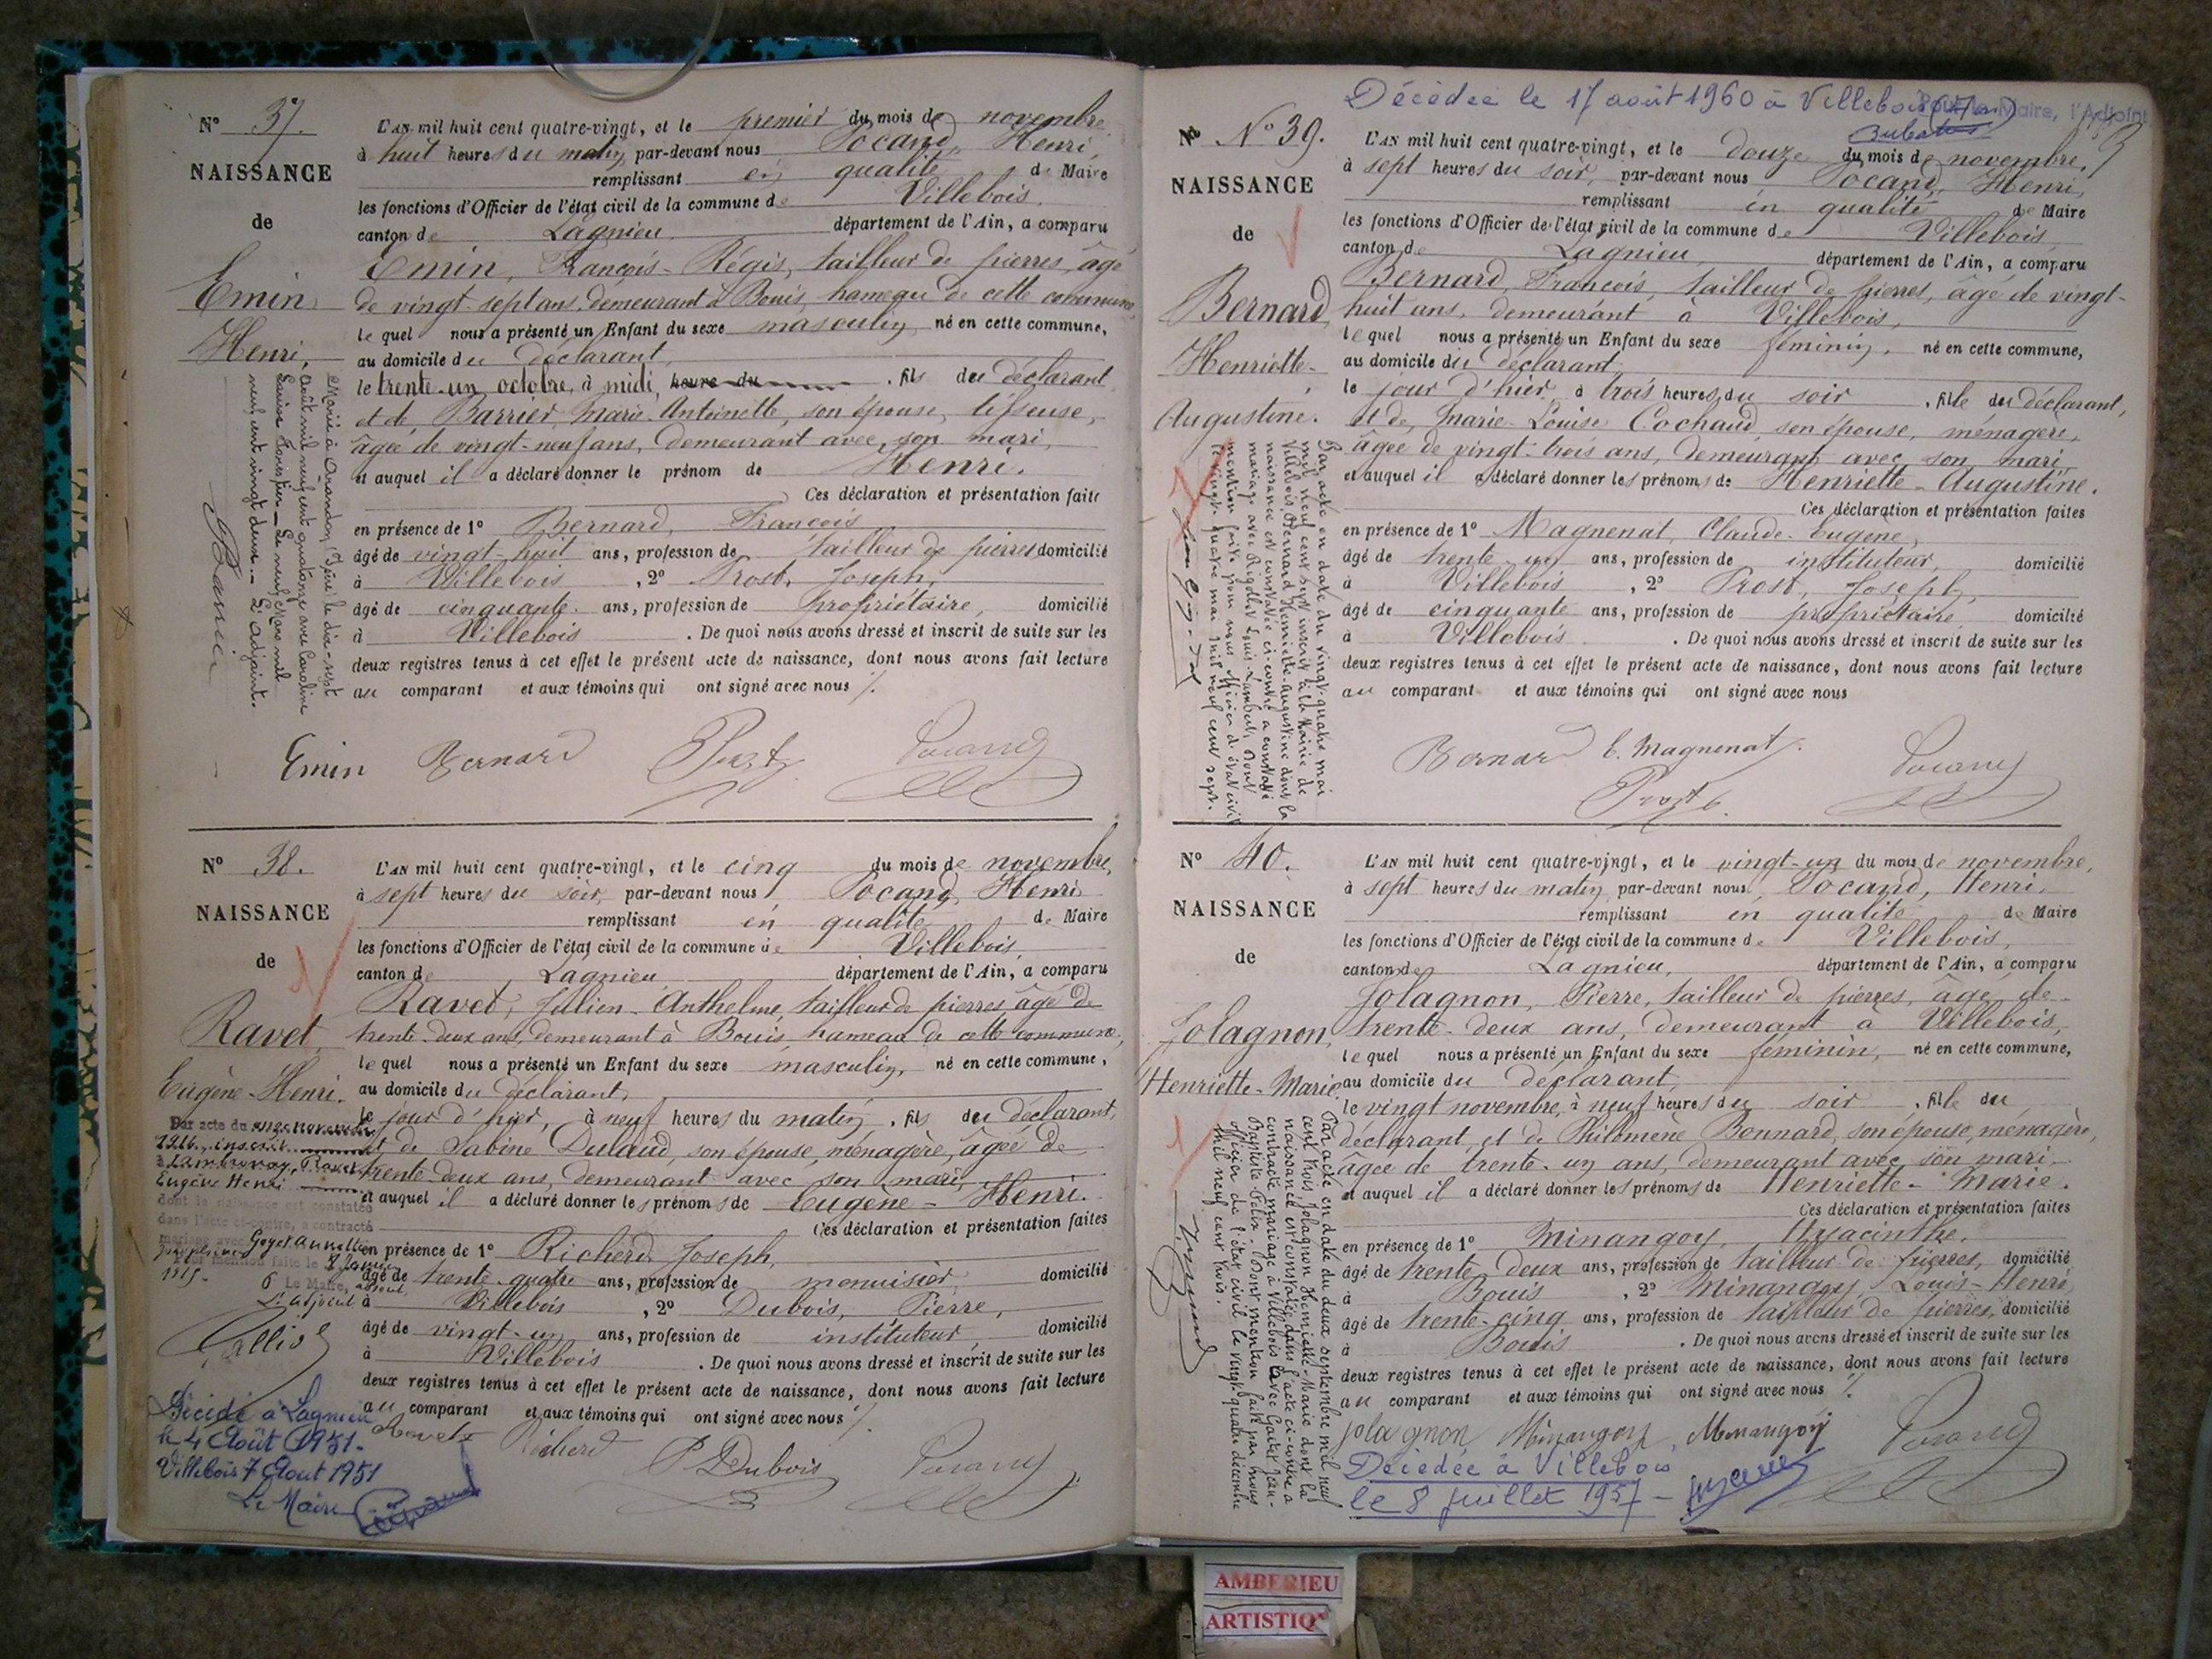 N° 37.
NAISSANCE
de
Emin
Henri.
L'AN mil huit cent quatre-vingt, et le premier du mois de novembre
à huit heures du matin, par-devant nous Pocand, Henri,
remplissant en qualité de Maire
les fonctions d'Officier de l'état civil de la commune de Villebois.
canton de Lagnieu département de l'Ain, a comparu
Emin, François-Régis, tailleur de pierres, âgé
de vingt-sept ans, demeurant à Bouis, hameau de cette commune,
le quel nous a présenté un Enfant du sexe masculin, né en cette commune,
au domicile du déclarant,
le trente-un octobre, à midi, heure du . fils du déclarant
et de Barrier, Marie-Antoinette, son épouse, tisseuse,
âgée de vingt-neuf ans, demeurant avec son mari,
et auquel il a déclaré donner le prénom de Henri.
Ces déclaration et présentation faites
en présence de 1° Bernard, François
âgé de vingt-huit ans, profession de tailleur de pierres domicilié
à Villebois , 2° Prost, Joseph,
âgé de cinquante ans, profession de propriétaire, domicilié
à Villebois . De quoi nous avons dressé et inscrit de suite sur les
deux registres tenus à cet effet le présent acte de naissance, dont nous avons fait lecture
au comparant et aux témoins qui ont signé avec nous ./.
Marié à Brandon, Isère, le dix-sept
août mil neuf cent quatorze avec Caroline
Louise — Le neuf Mars mil
neuf cent vingt deux. — L'adjoint.
Emin Bernard Prost Pocand
N° 38.
NAISSANCE
de
Ravet
Eugène-Henri.
L'AN mil huit cent quatre-vingt, et le cinq du mois de novembre,
à sept heures du soir, par-devant nous Pocand, Henri
remplissant en qualité de Maire
les fonctions d'Officier de l'état civil de la commune de Villebois,
canton de Lagnieu département de l'Ain, a comparu
Ravet, Julien-Anthelme, tailleur de pierres, âgé de
trente-deux ans, demeurant à Bouis, hameau de cette commune,
le quel nous a présenté un Enfant du sexe masculin, né en cette commune,
au domicile du déclarant,
le jour d'hier, à neuf heures du matin . fils du déclarant,
et de Sabine Dulaud, son épouse, ménagère, âgée de
trente-deux ans, demeurant avec son mari,
et auquel il a déclaré donner les prénoms de Eugène-Henri.
Ces déclaration et présentation faites
en présence de 1° Richerd, Joseph,
âgé de trente-quatre ans, profession de menuisier, domicilié
à Villebois , 2° Dubois, Pierre,
âgé de vingt-un ans, profession de instituteur domicilié
à Villebois . De quoi nous avons dressé et inscrit de suite sur les
deux registres tenus à cet effet le présent acte de naissance, dont nous avons fait lecture
au comparant et aux témoins qui ont signé avec nous ./.
Par acte du onze novembre
inscrit
Ravet
Eugène Henri
dont la naissance est constatée
dans l'acte ci-contre, a contracté
mariage avec Goyet Annette
Joséphine mention faite le 8 Janvier
Le Maire, absent,
L'adjoint
Ravet Richerd P Dubois Pocand
Décédé à Lagnieu
le 4 Août 1951.
Villebois 7 Août 1951
Le Maire
Décédée le 17 août 1960 à Villebois
Maire, l'Adjoint
N° N° 39.
NAISSANCE
de
Bernard,
Henriette-
Augustine.
L'AN mil huit cent quatre-vingt, et le douze du mois de novembre,
à sept heures du soir, par-devant nous Pocand, Henri,
remplissant en qualité de Maire
les fonctions d'Officier de l'état civil de la commune de Villebois,
canton de Lagnieu, département de l'Ain, a comparu
Bernard, François, tailleur de pierres, âgé de vingt-
huit ans, demeurant à Villebois,
le quel nous a présenté un Enfant du sexe féminin, né en cette commune,
au domicile du déclarant
le jour d'hier, à trois heures du soir . fille du déclarant,
et de, Marie-Louise Cochaud, son épouse, ménagère,
âgée de vingt-trois ans, demeurant avec son mari
et auquel il a déclaré donner les prénoms de Henriette-Augustine.
Ces déclaration et présentation faites
en présence de 1° Magnenat, Claude-Eugène,
âgé de trente-un ans, profession de instituteur, domicilié
à Villebois , 2° Prost, Joseph,
âgé de cinquante ans, profession de propriétaire, domicilié
à Villebois . De quoi nous avons dressé et inscrit de suite sur les
deux registres tenus à cet effet le présent acte de naissance, dont nous avons fait lecture
au comparant et aux témoins qui ont signé avec nous
Par acte en date du vingt-quatre mai
mil neuf cent sept inscrit à la Mairie de
Villebois, Bernard Henriette-Augustine dont la
naissance est constatée ci-contre a contracté
mariage avec Rigollet Louis-Lambert, Dont
mention faite par nous officier de l'état civil
le vingt-quatre mai mil neuf cent sept.
Bernard C. Magnenat Prost Pocand
N° 40.
NAISSANCE
de
Jolagnon,
Henriette-Marie.
L'AN mil huit cent quatre-vingt, et le vingt-un du mois de novembre,
à sept heures du matin, par-devant nous, Pocand, Henri,
remplissant en qualité de Maire
les fonctions d'Officier de l'état civil de la commune de Villebois,
canton de Lagnieu, département de l'Ain, a comparu
Jolagnon, Pierre, tailleur de pierres, âgé de
trente-deux ans, demeurant à Villebois,
le quel nous a présenté un Enfant du sexe féminin, né en cette commune,
au domicile du déclarant,
le vingt novembre, à neuf heures du soir . fille du
déclarant et de Philomène Bonnard, son épouse, ménagère,
âgée de trente-un ans, demeurant avec son mari
et auquel il a déclaré donner les prénoms de Henriette-Marie.
Ces déclaration et présentation faites
en présence de 1° Minangoy, Hyacinthe.
âgé de trente-deux ans, profession de tailleur de pierres, domicilié
à Bouis , 2° Minangoy, Louis-Henri,
âgé de trente-cinq ans, profession de tailleur de pierres, domicilié
à Bouis . De quoi nous avons dressé et inscrit de suite sur les
deux registres tenus à cet effet le présent acte de naissance, dont nous avons fait lecture
au comparant et aux témoins qui ont signé avec nous ./.
Par acte en date du deux septembre mil neuf
cent trois, Jolagnon Henriette-Marie dont la
naissance est constatée dans l'acte ci-contre a
contracté mariage à Villebois avec Goyet Jean-
Baptiste. Dont mention faite par nous
officier de l'état civil le vingt-quatre décembre
mil neuf cent trois.
Jolagnon, Minangoy, Minangoy Pocand
Décédée à Villebois
le 8 juillet 1957 —
AMBERIEU
ARTISTIQ